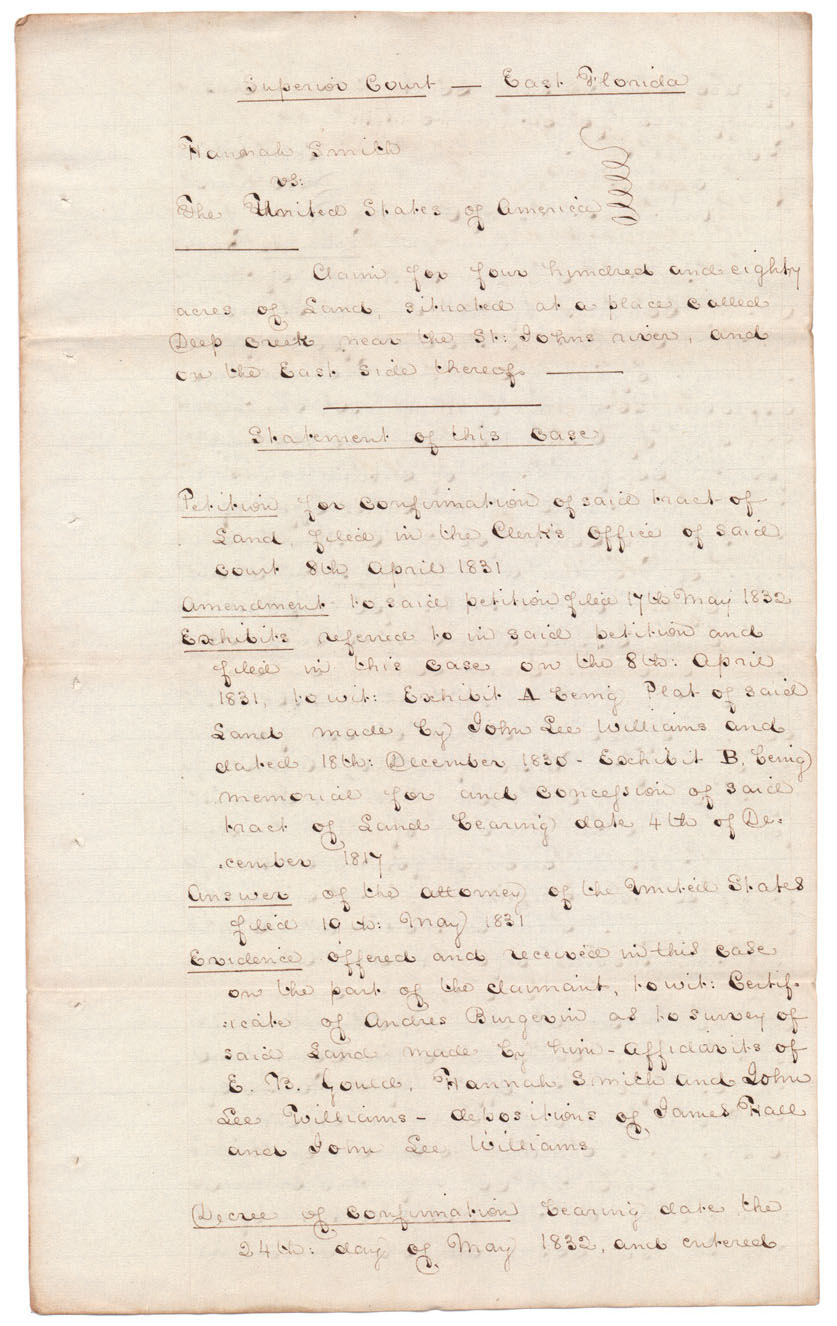 Superior Court — East Florida
Hannah Smith
vs:
The United States of America
Claim for four hundred and eighty
acres of Land, situated at a place called
Deep Creek near the St: Johns river, and
on the East side thereof. ———
Statement of this Case
Petition for confirmation of said tract of
Land, filed in the Clerk's Office of said
Court 8th April 1831
Amendment to said petition filed 17th May 1832
Exhibits referred to in said petition and
filed in this case on the 8th: April
1831, to wit: Exhibit A being Plat of said
Land made by John Lee Williams and
dated 18th: December 1830 - Exhibit B, being
memorial for and concession of said
tract of Land bearing date 4th of De:
:cember 1817
Answer of the attorney of the United States
filed 10th: May 1831
Evidence offered and received in this case
on the part of the claimant, to wit: Certif-
:icate of Andres Burgevin as to survey of
said Land made by him - Affidavits of
E. B. Gould, Hannah Smith and John
Lee Williams - depositions of James Hall
and John Lee Williams
Decree of confirmation bearing date the
24th: day of May 1832, and entered